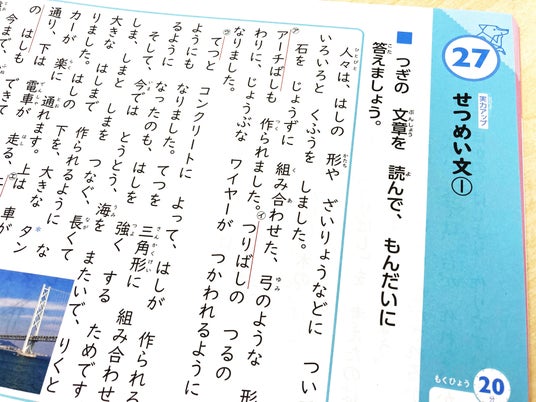 27
実力アップ
せつめい文①
もくひょう 20分
■ つぎの 文章を 読んで、もんだいに
答えましょう。
人々は、はしの 形や ざいりょうなどに つい
いろいろと くふうを しました。
㋐石を じょうずに 組み合わせた、弓のような 形
アーチばしも 作られました。㋑つりばしの つるの
わりに、じょうぶな ワイヤーが つかわれるように
なりました。
㋒てつと コンクリートに よって、はしが 作られる
ようにも なりました。てつを 三角形に 組み合わせ
るように なったのも、はしを 強く する ためです
そして、今では とうとう、海を またいで、りくと
しま、しまと しまを つなぐ、長くて
大きな はしまで 作られるように な
りました。はしの 下を、大きな タン
カーが 楽に 通れます。㋓上は 車が
通り、下は 電車が 走る、
の はしも できて
今まで、